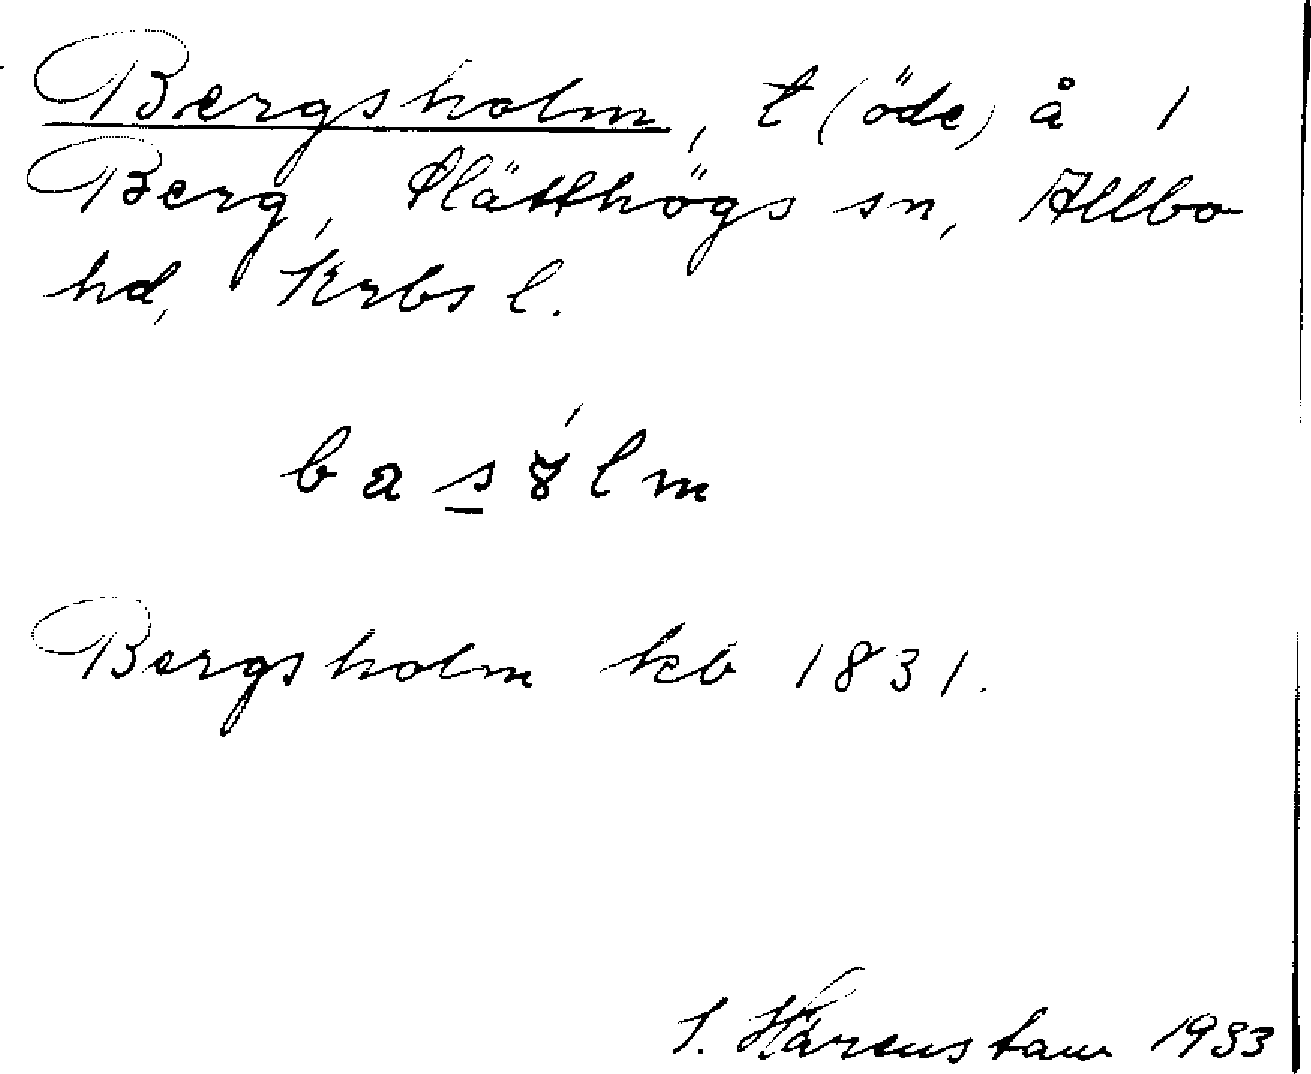 Bergsholm, t (öde) å 1
Berg, Slätthögs sn, Allbo
hd, Krbs l.
basólm
Bergsholm kb 1831.
S. Härenstam 1933